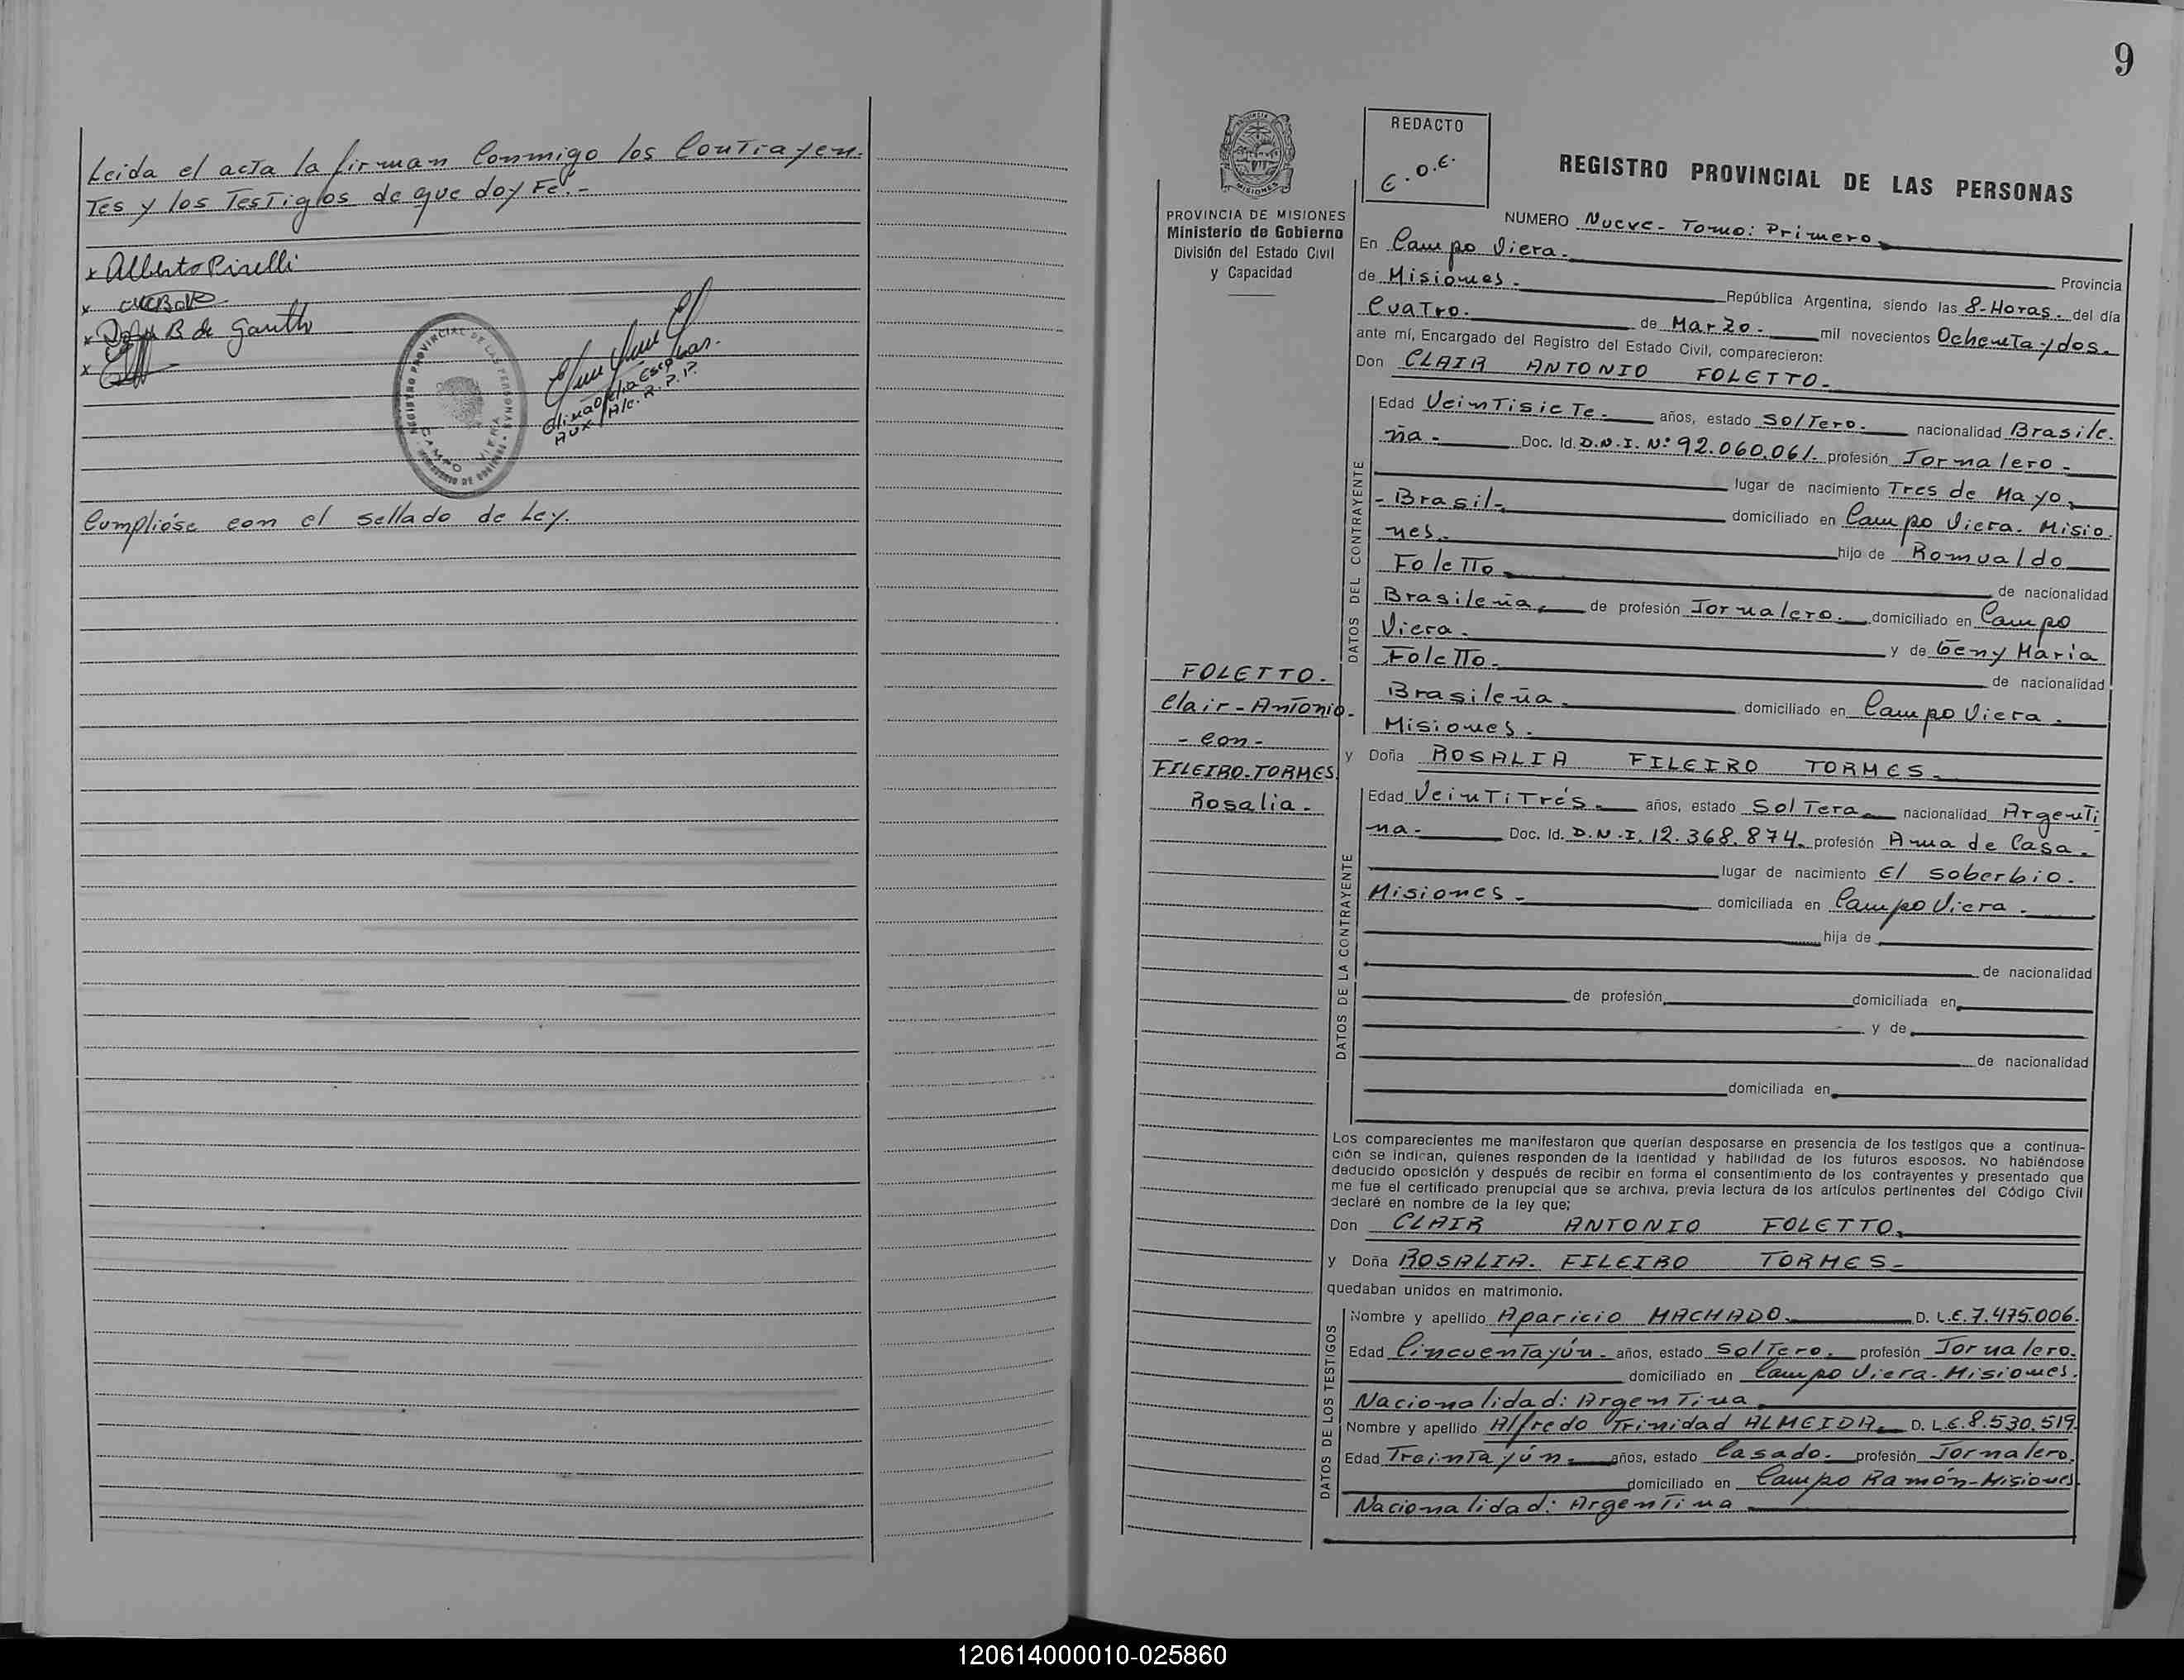 Leida el acta la firman Conmigo los Contrayen.
Tes y los Testigos de que doy Fé.-
x Alberto Pirelli
x
x B de Gauth
x
REGISTRO PROVINCIAL DE LAS PERSONAS
CAMPO VIERA
MINISTERIO DE GOBIERNO
Elina Ofelia Escobar.
Aux. A/c. R.P.P.
Cumplióse con el sellado de Ley.
9
PROVINCIA DE MISIONES
Ministerio de Gobierno
División del Estado Civil
y Capacidad
REDACTO
E.O.E.
REGISTRO PROVINCIAL DE LAS PERSONAS
NUMERO Nueve- Tomo: Primero
En Campo Viera.- Provincia
de Misiones.- República Argentina, siendo las 8-Horas.- del día
Cuatro.- de Marzo.- mil novecientos Ochenta y dos.-
ante mí, Encargado del Registro del Estado Civil, comparecieron:
Don CLAIR ANTONIO FOLETTO.-
DATOS DEL CONTRAYENTE
Edad VeinTisieTe.- años, estado SolTero.- nacionalidad Brasile.
ña.- Doc. Id. D.N.I. N:º 92.060.061. profesión Jornalero.-
lugar de nacimiento Tres de Mayo,
-Brasil- domiciliado en Campo Viera. Misio.
nes.- hijo de Romualdo
FoleTTo de nacionalidad
Brasileña, de profesión Jornalero.- domiciliado en Campo
Viera.- y de Geny María
FoleTTo.- de nacionalidad
Brasileña.- domiciliado en Campo Viera.-
Misiones.-
FOLETTO.
Clair-Antonio.-
- con -
FILEIRO-TORMES
Rosalia.-
y Doña ROSALIA FILEIRO TORMES.-
DATOS DE LA CONTRAYENTE
Edad VeinTiTrés.- años, estado SolTera nacionalidad ArgenTi
na.- Doc. Id. D.N.I. 12.368.874. profesión Ama de Casa.-
lugar de nacimiento El soberbio.-
Misiones.- domiciliada en Campo Viera.-
hija de
de nacionalidad
de profesión domiciliada en
y de
de nacionalidad
domiciliada en
Los comparecientes me manifestaron que querían desposarse en presencia de los testigos que a continua-
ción se indican, quienes responden de la identidad y habilidad de los futuros esposos. No habiéndose
deducido oposición y después de recibir en forma el consentimiento de los contrayentes y presentado que
me fue el certificado prenupcial que se archiva, previa lectura de los artículos pertinentes del Código Civil
declaré en nombre de la ley que;
Don CLAIR ANTONIO FOLETTO,
y Doña ROSALIA. FILEIRO TORMES-
quedaban unidos en matrimonio.
DATOS DE LOS TESTIGOS
Nombre y apellido Aparicio MACHADO. D. L.E. 7.475.006.
Edad Cincuentayún.- años, estado SolTero.- profesión Jornalero.
domiciliado en Campo Viera-Misiones.
Nacionalidad: ArgenTina
Nombre y apellido Alfredo Trinidad ALMEIDA. D. L.E. 8.530.519.
Edad Treintayún.- años, estado Casado.- profesión Jornalero.
domiciliado en Campo Ramón-Misiones
Nacionalidad: ArgenTina
120614000010-025860